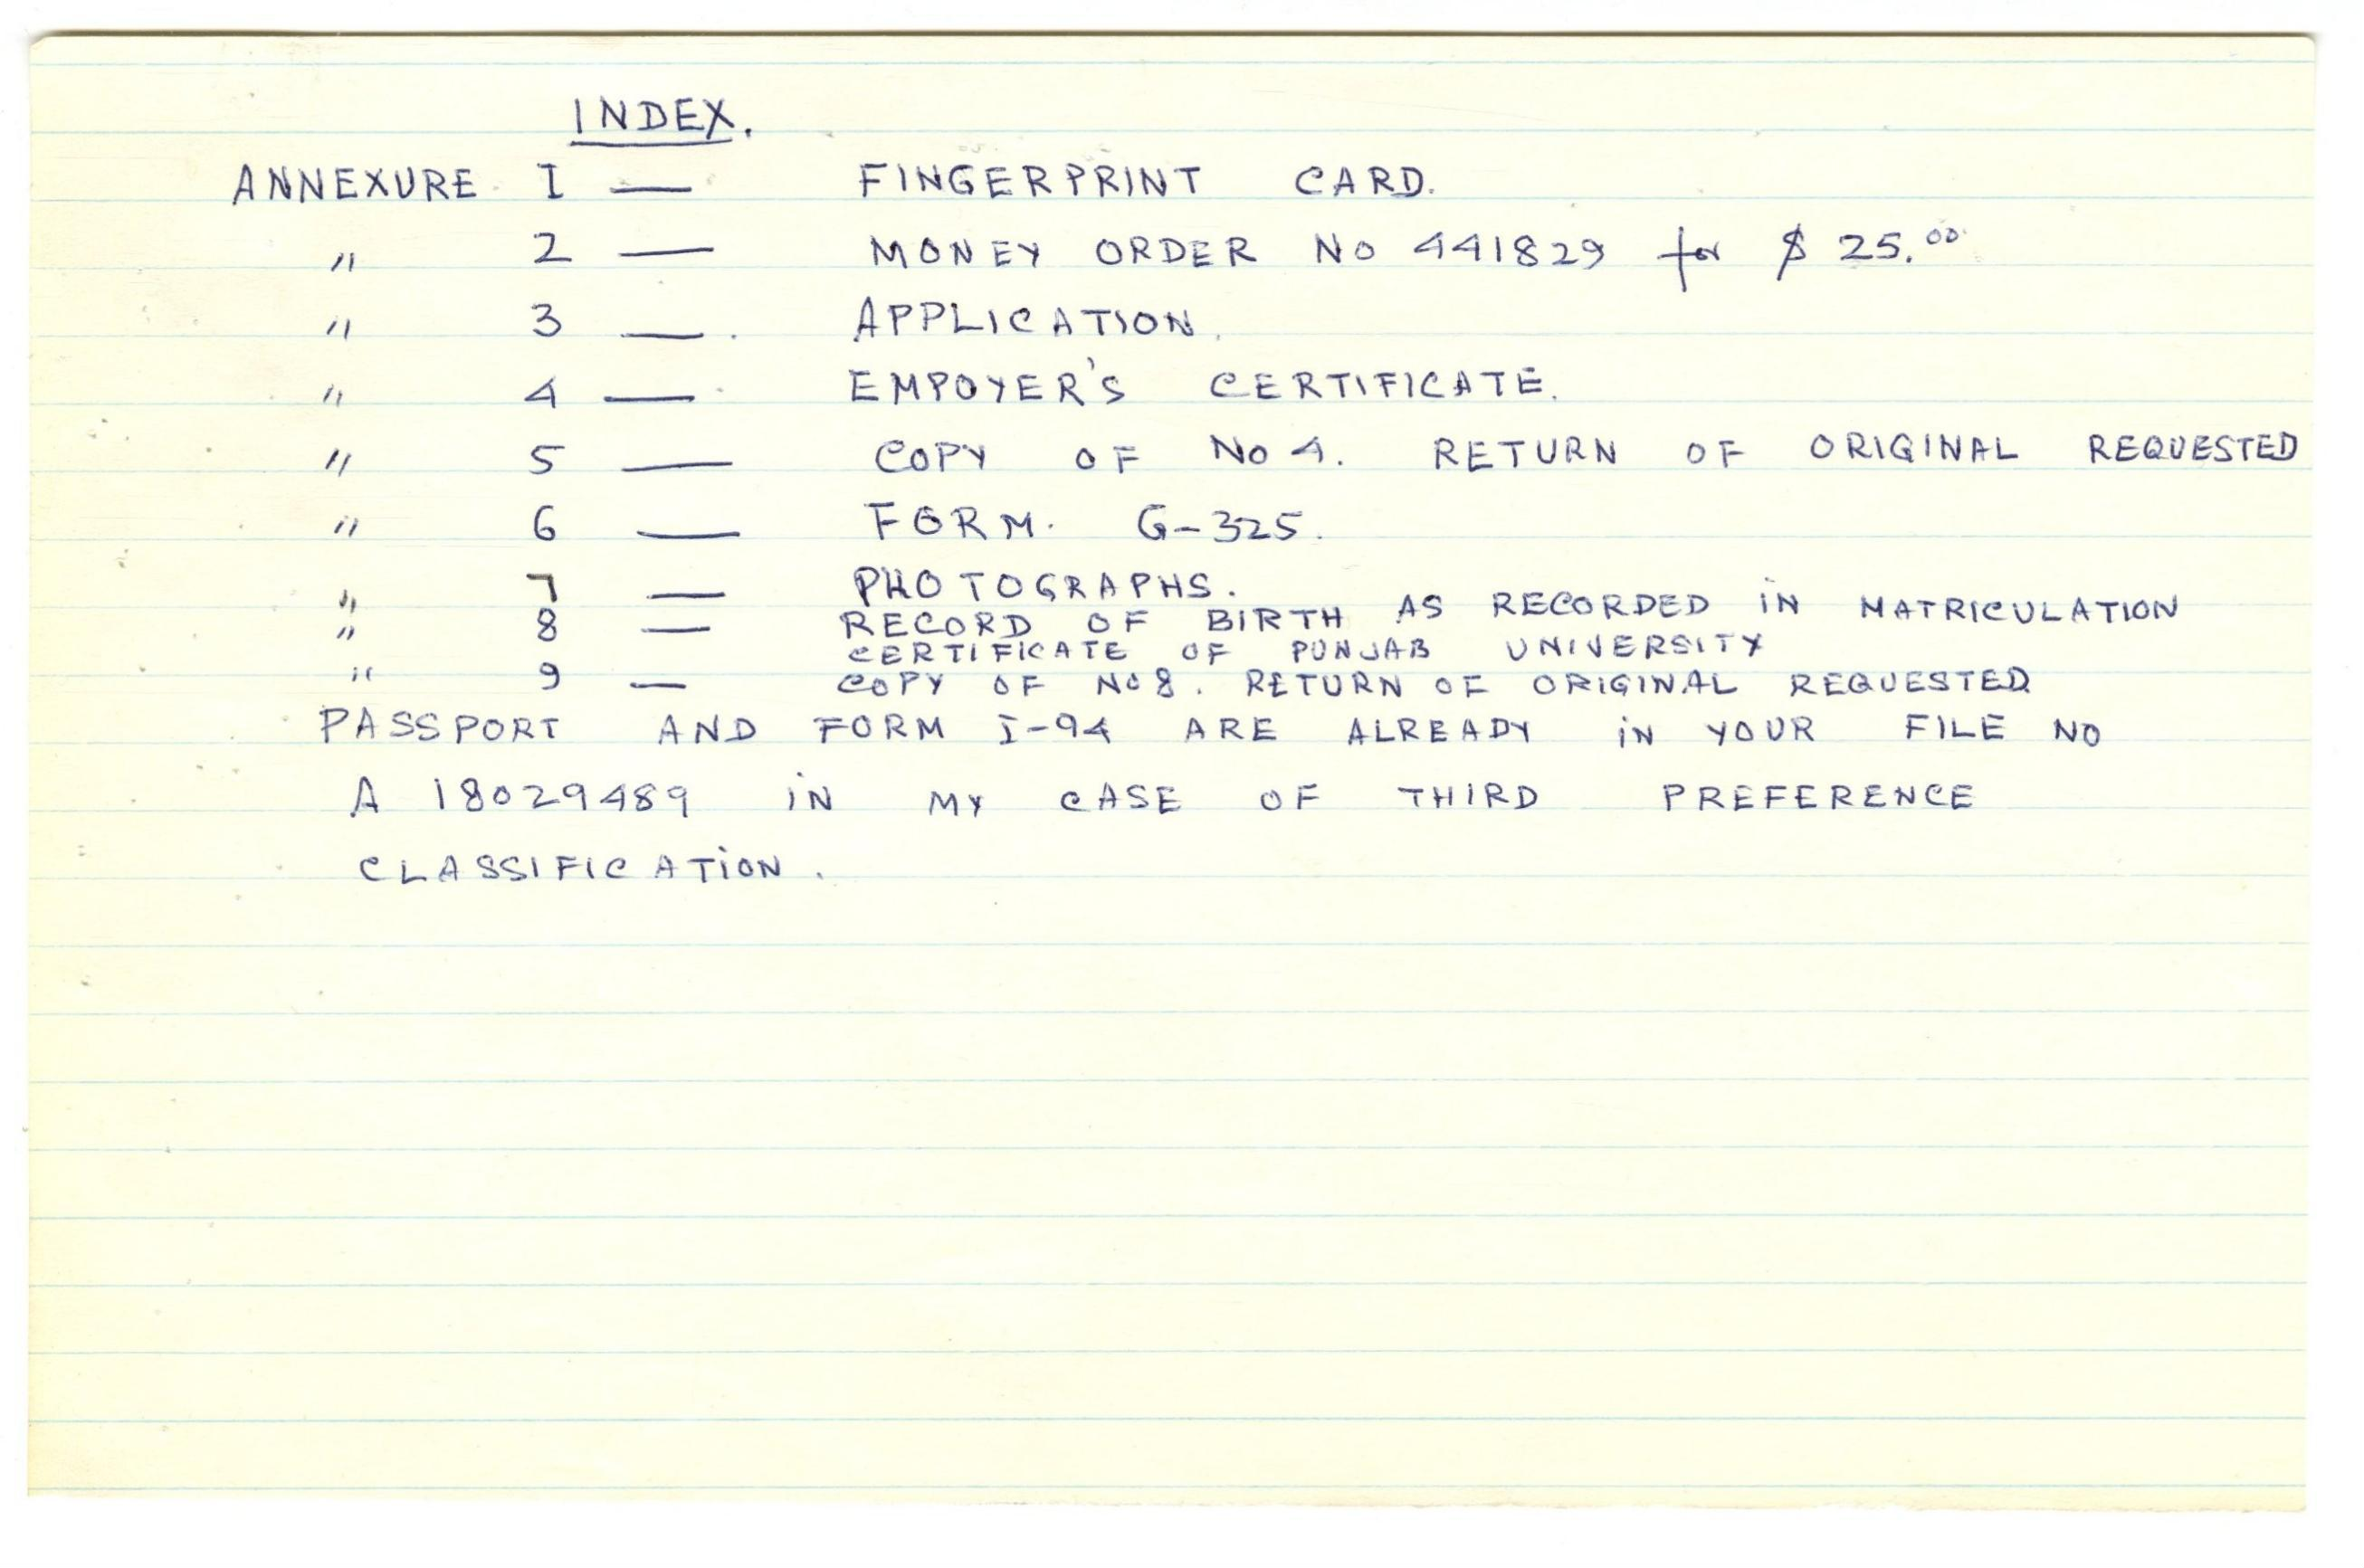 INDEX.
ANNEXURE I — FINGERPRINT CARD.
" 2 — MONEY ORDER No 441829 for $ 25.00
" 3 — . APPLICATION.
" 4 — EMPOYER'S CERTIFICATE.
" 5 — COPY OF No 4. RETURN OF ORIGINAL REQUESTED
" 6 — FORM. G-325.
" 7 — PHOTOGRAPHS.
" 8 — RECORD OF BIRTH AS RECORDED IN MATRICULATION
CERTIFICATE OF PUNJAB UNIVERSITY
" 9 — COPY OF No 8. RETURN OF ORIGINAL REQUESTED
PASSPORT AND FORM I-94 ARE ALREADY IN YOUR FILE NO
A 18029489 IN MY CASE OF THIRD PREFERENCE
CLASSIFICATION.